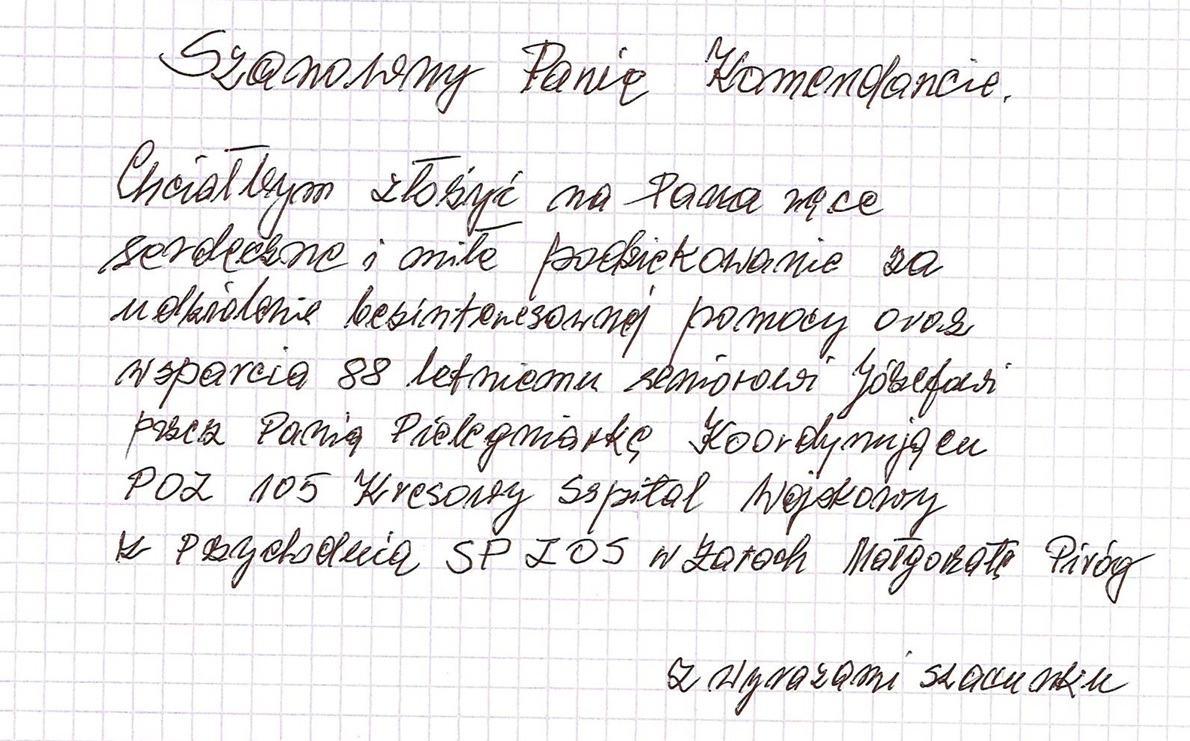 Szanowny Panię Komendancie.
Chciałbym złożyć na Pana ręce
serdeczne i miłe podziękowanie za
udzielenie bezinteresownej pomocy oraz
wsparcia 88 letniemu seniorowi Józefowi
przez Panią Pielęgniarkę Koordynującu
POZ 105 Kresowy Szpital Wojskowy
z Przychodnią SP ZOS w Żarach Małgorzatę Piróg
Z wyrazami szacunku